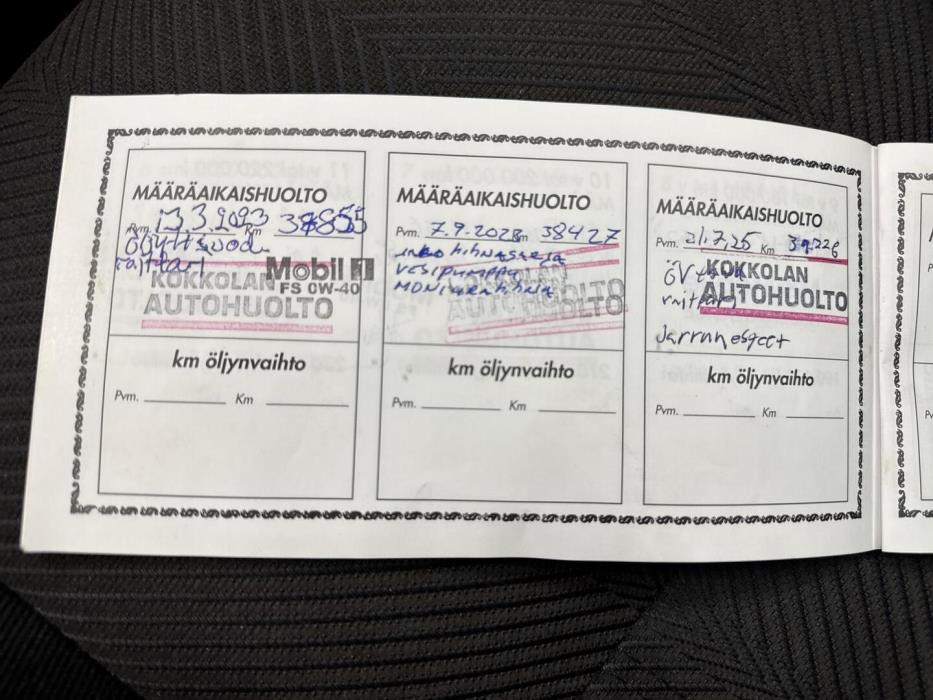 MÄÄRÄAIKAISHUOLTO
Pvm. 13.3.2023 Km
Mobil 1
FS 0W-40
KOKKOLAN
AUTOHUOLTO
km öljynvaihto
Pvm. Km
MÄÄRÄAIKAISHUOLTO
Pvm. 7.9.2023 Km 38427
JAKO HIHNASARJA
VESIPUMPPU
MONIURAHIHNA
KOKKOLAN
AUTOHUOLTO
km öljynvaihto
Pvm. Km
MÄÄRÄAIKAISHUOLTO
Pvm. 21.7.25 Km 39226
KOKKOLAN
AUTOHUOLTO
Jarrunesteet
km öljynvaihto
Pvm. Km